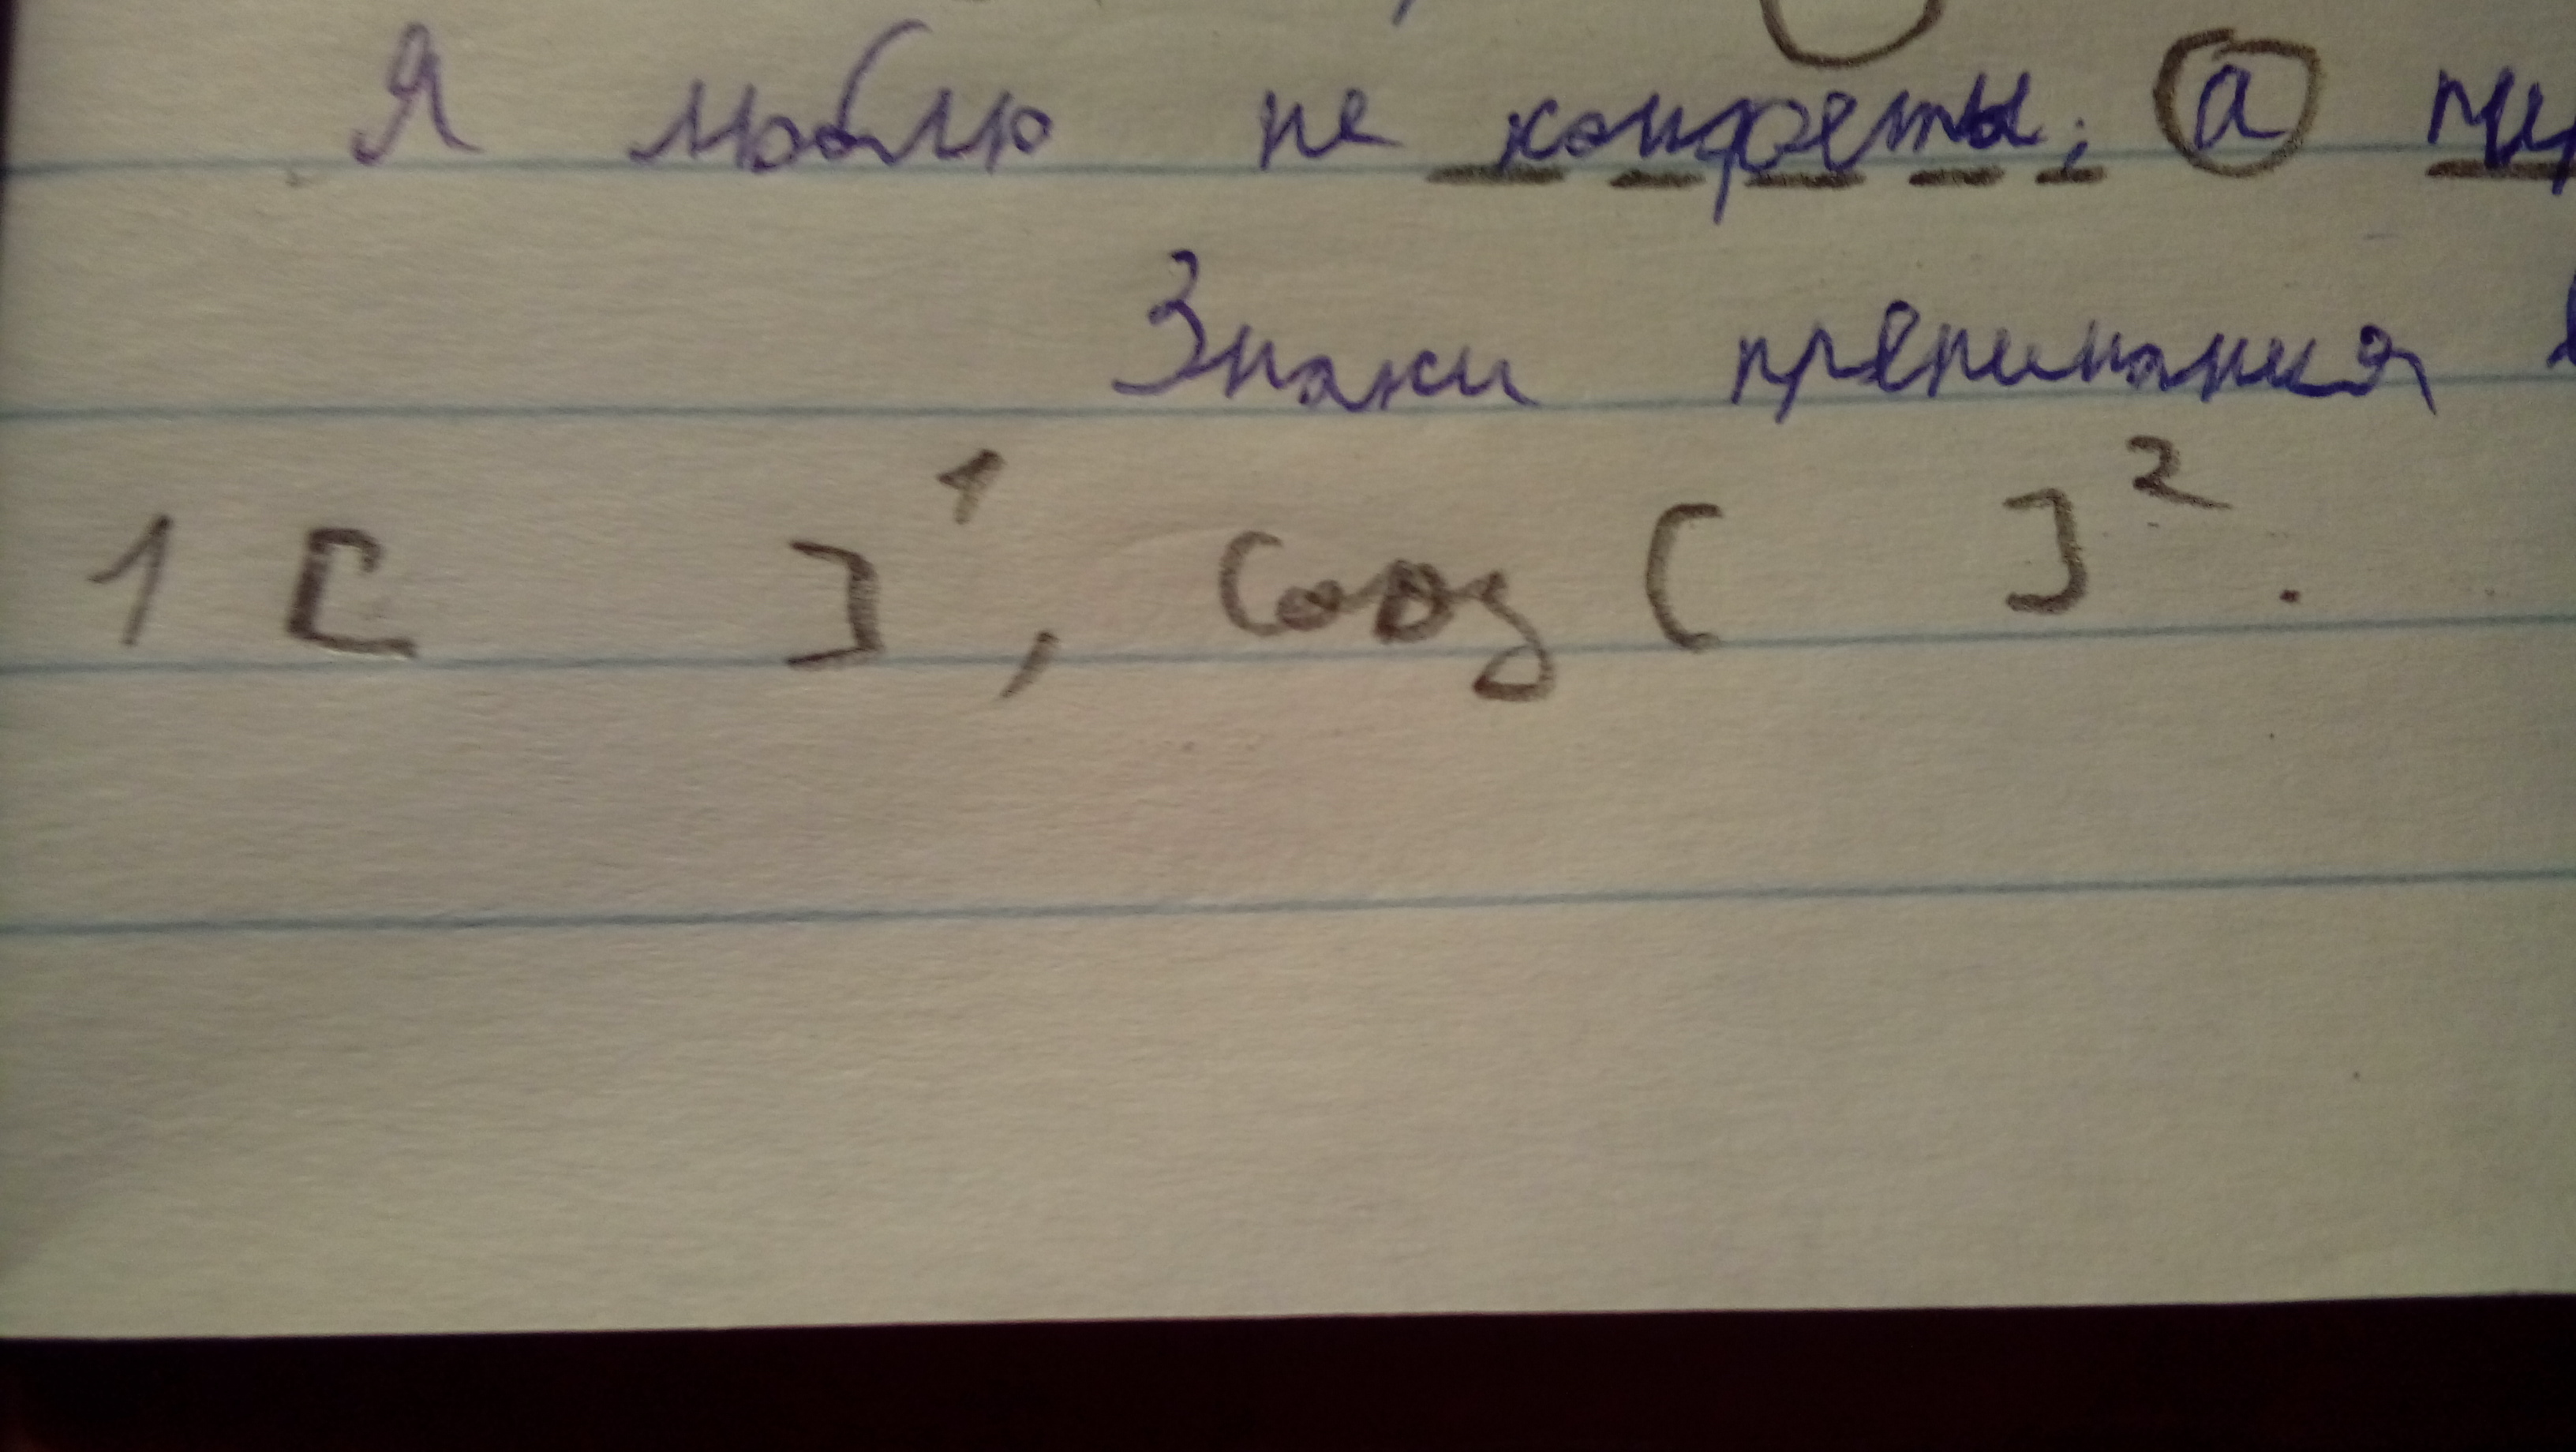 Я люблю не конфеты, а
Знаки препинания
1 [ ]¹, союз [ ]².